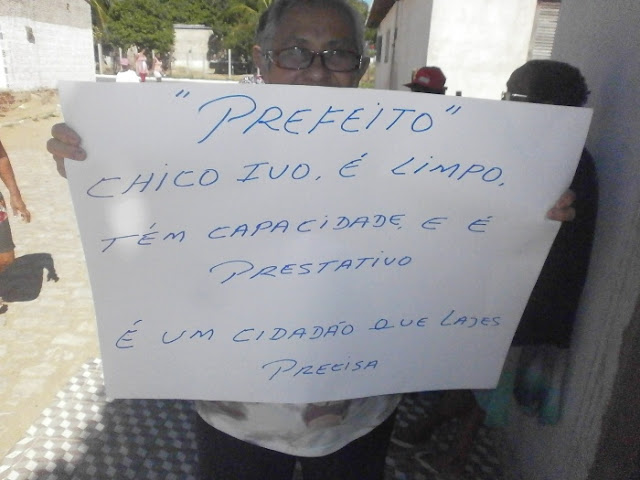 "PREFEITO"
CHICO IVO, É LIMPO,
TÉM CAPACIDADE, E É
PRESTATIVO
É UM CIDADÃO QUE LAJES
PRECISA